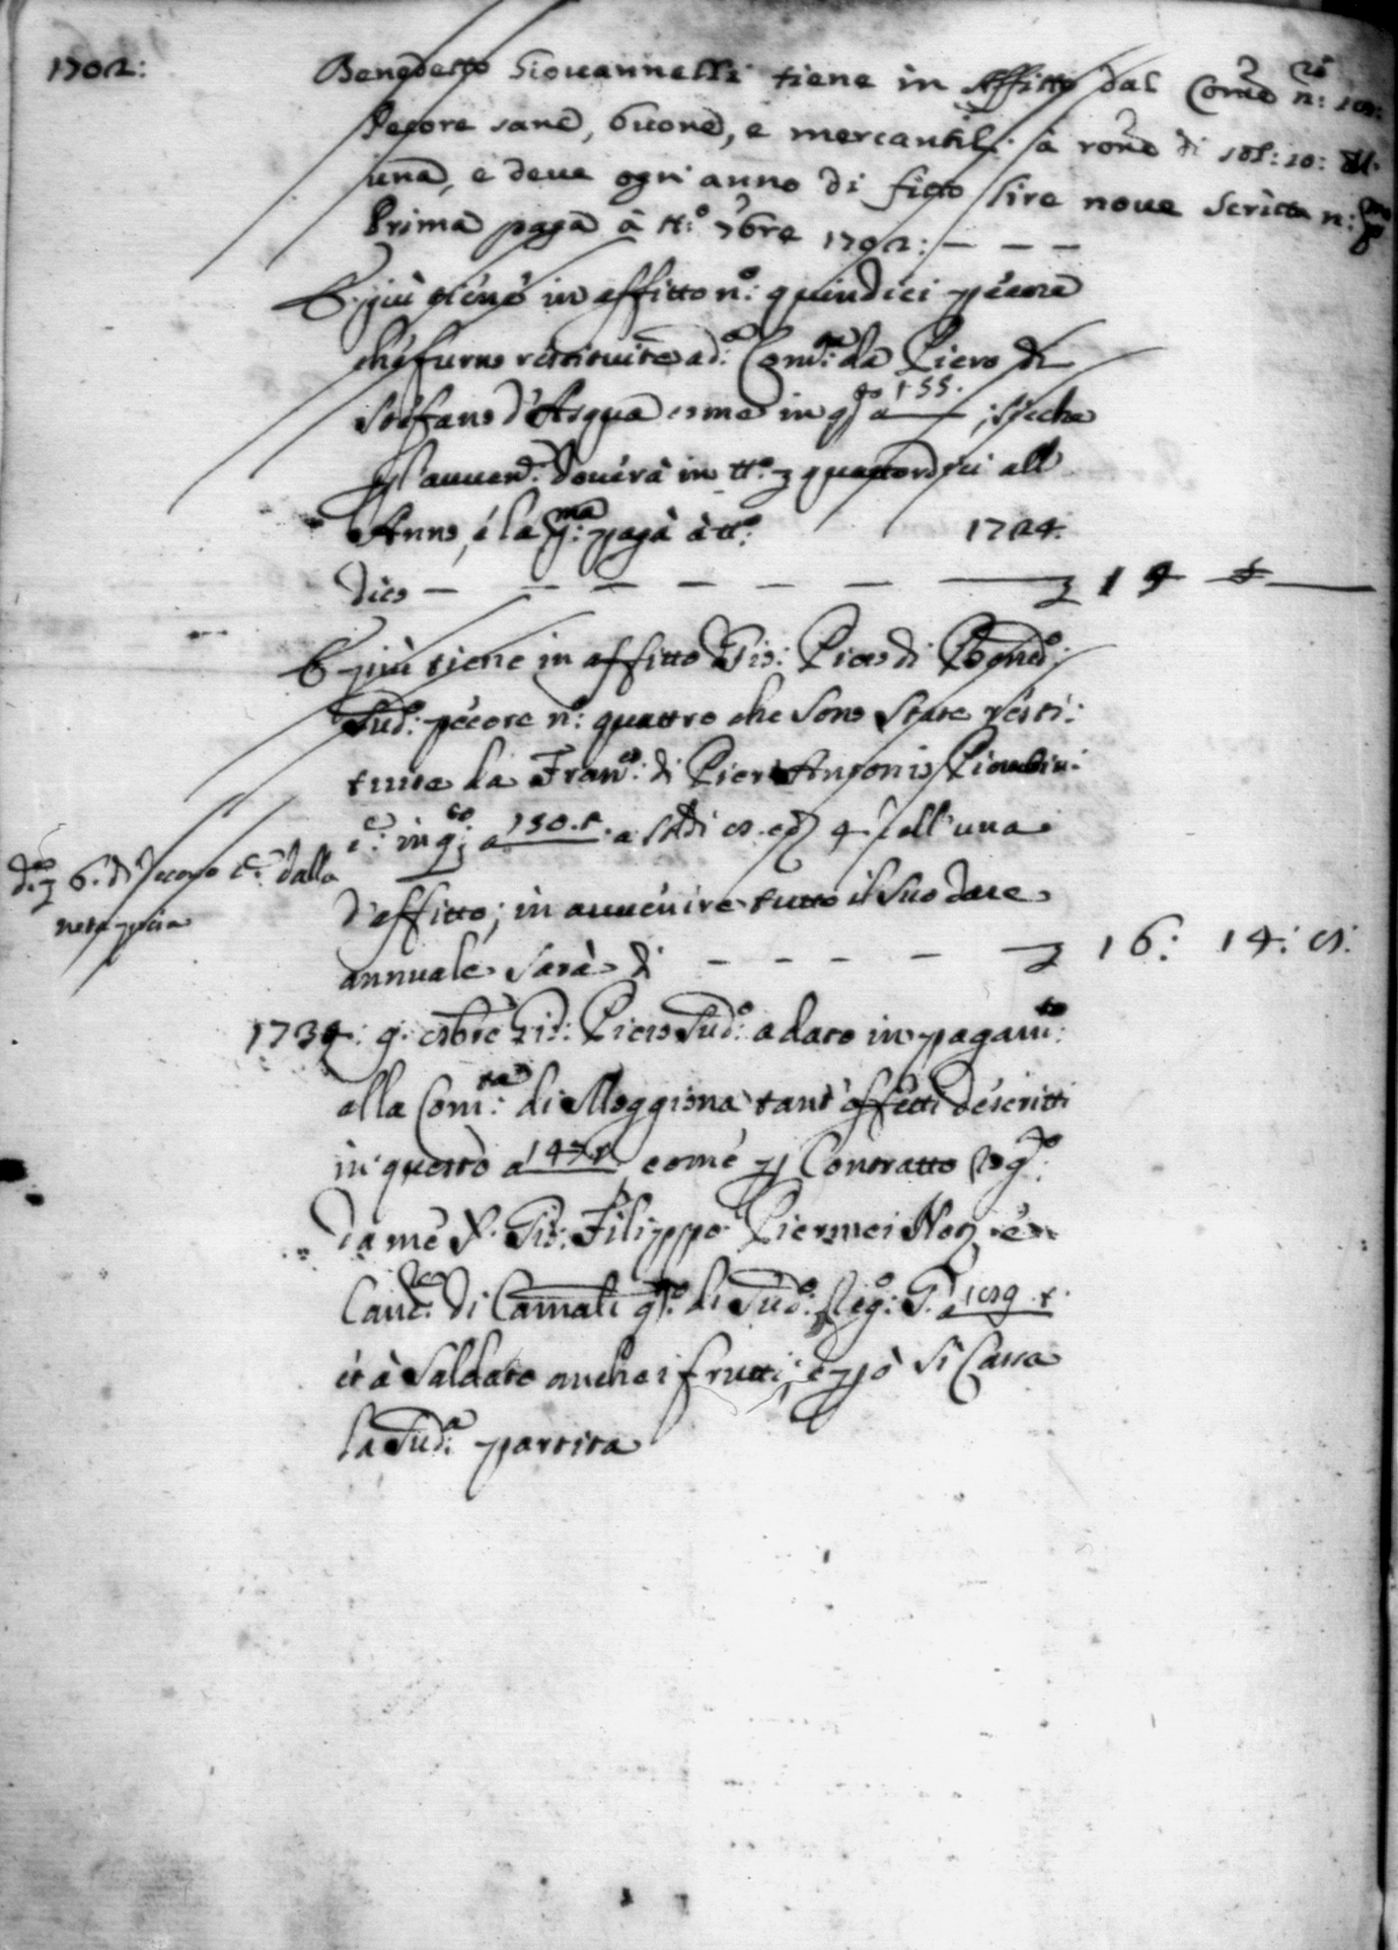 1702:
Benedetto Giovannelli tiene in Affitto dal Comne n:
Pecore sane, buone, e mercantili à rone di sol: 10: all'
una, e deve ogni anno di fitto lire nove Scritta n:
Prima paga à tt:o 7bre 1702: — — —
E più tiene in affitto n:o quindici pecore
che furno restituite ad:a Com:tà da Piero di
Stefano d'Acqua come in q:to a 155. ; sì che
p l'avven:e doverà in tt:o quattordici all'
Anno, é la p:ma paga à tt:o 1724.
dico — — — — — — — 14
E più tiene in affitto Gio: Piero di Bened:o
Sud:o pecore n:o quattro che sono state resti:
tuite da Fran:co di Pier Antonio
c:e in q:to a 130.t. a soldi all'una
d'affitto; in avvenire tutto il suo dare
annuale sarà di — — — — — 16: 14:
6. di dalla
1734: Gio: Piero Sud:o a dato in pagam:to
alla Com:tà di Moggiona tant'effetti descritti
in questo a 147.t. come p Contratto Rog:o
da me Gio: Filippo Piermei Not é
Canc:re di Camali q:to di Sud:o Reg:o G. a 109.t.
et à Saldato anche i frutti, e pò si Cassa
la Sud:a partita